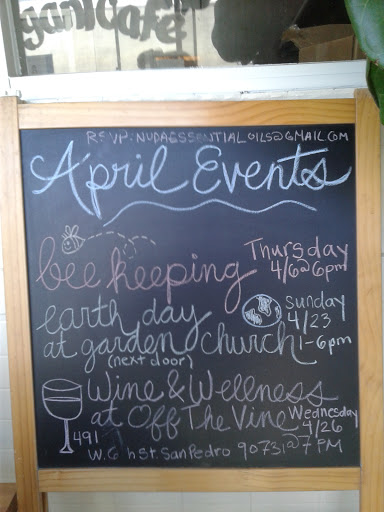 RSVP: NUDAESSENTIALOILS@GMAIL.COM
April Events
bee keeping Thursday
4/6@6pm
earth day Sunday
4/23
at garden church 1-6pm
(next door)
Wine & Wellness
at Off The Vine Wednesday
4/26
491 W. 6th St. San Pedro 90731 @ 7 PM